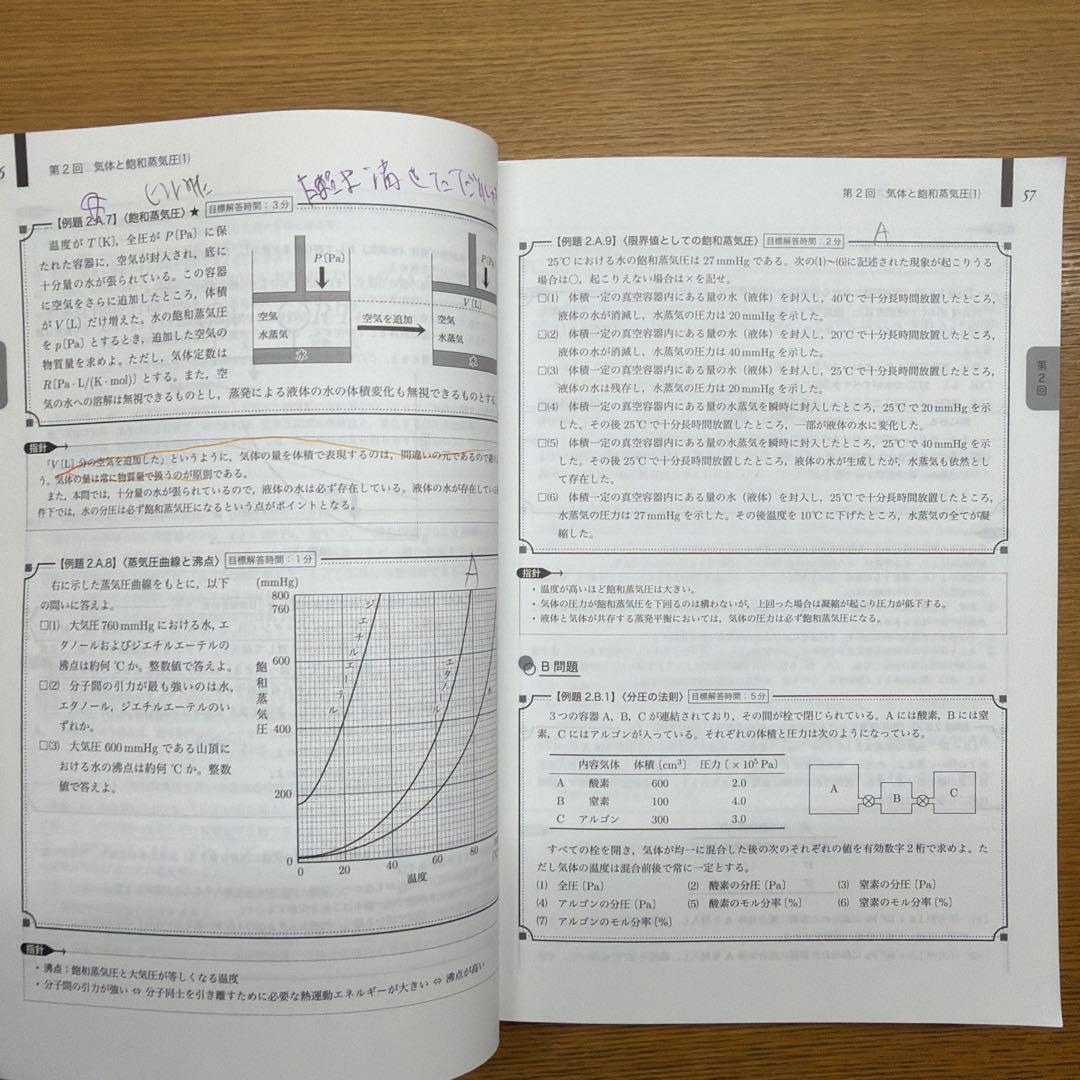 第2回 気体と飽和蒸気圧(1)
【例題 2.A.7】〈飽和蒸気圧〉★ 目標解答時間：3分
温度が T〔K〕，全圧が P〔Pa〕に保
たれた容器に，空気が封入され，底に
十分量の水が張られている。この容器
に空気をさらに追加したところ，体積
が V〔L〕だけ増えた。水の飽和蒸気圧
を p〔Pa〕とするとき，追加した空気の
物質量を求めよ。ただし，気体定数は
R〔Pa・L/(K・mol)〕とする。また，空
気の水への溶解は無視できるものとし，蒸発による液体の水の体積変化も無視できるものとする
P〔Pa〕
空気
水蒸気
水
空気を追加
V〔L〕
空気
水蒸気
水
指針
「V〔L〕分の空気を追加した」というように，気体の量を体積で表現するのは，間違いの元であるので
う。気体の量は常に物質量で扱うのが原則である。
また，本問では，十分量の水が張られているので，液体の水は必ず存在している。液体の水が存在している
件下では，水の分圧は必ず飽和蒸気圧になるという点がポイントとなる。
【例題 2.A.8】〈蒸気圧曲線と沸点〉 目標解答時間：1分
右に示した蒸気圧曲線をもとに，以下
の問いに答えよ。
□(1) 大気圧 760 mmHg における水，エ
タノールおよびジエチルエーテルの
沸点は約何 ℃か。整数値で答えよ。
□(2) 分子間の引力が最も強いのは水，
エタノール，ジエチルエーテルのい
ずれか。
□(3) 大気圧 600 mmHg である山頂に
おける水の沸点は約何 ℃か。整数
値で答えよ。
(mmHg)
800
760
600
飽和蒸気圧
400
200
0
0 20 40 60 80
温度
ジエチルエーテル
エタノール
水
A
指針
・沸点：飽和蒸気圧と大気圧が等しくなる温度
・分子間の引力が強い ⇔ 分子同士を引き離すために必要な熱運動エネルギーが大きい ⇔ 沸点が高い
第2回 気体と飽和蒸気圧(1) 57
A
【例題 2.A.9】〈限界値としての飽和蒸気圧〉 目標解答時間：2分
25℃における水の飽和蒸気圧は 27 mmHg である。次の(1)〜(6)に記述された現象が起こりうる
場合は○，起こりえない場合は×を記せ。
□(1) 体積一定の真空容器内にある量の水（液体）を封入し，40℃で十分長時間放置したところ，
液体の水が消滅し，水蒸気の圧力は 20 mmHg を示した。
□(2) 体積一定の真空容器内にある量の水（液体）を封入し，20℃で十分長時間放置したところ，
液体の水が消滅し，水蒸気の圧力は 40 mmHg を示した。
□(3) 体積一定の真空容器内にある量の水（液体）を封入し，25℃で十分長時間放置したところ，
液体の水は残存し，水蒸気の圧力は 20 mmHg を示した。
□(4) 体積一定の真空容器内にある量の水蒸気を瞬時に封入したところ，25℃で 20 mmHg を示
した。その後 25℃で十分長時間放置したところ，一部が液体の水に変化した。
□(5) 体積一定の真空容器内にある量の水蒸気を瞬時に封入したところ，25℃で 40 mmHg を示
した。その後 25℃で十分長時間放置したところ，液体の水が生成したが，水蒸気も依然とし
て存在した。
□(6) 体積一定の真空容器内にある量の水（液体）を封入し，25℃で十分長時間放置したところ，
水蒸気の圧力は 27 mmHg を示した。その後温度を 10℃に下げたところ，水蒸気の全てが凝
縮した。
指針
・温度が高いほど飽和蒸気圧は大きい。
・気体の圧力が飽和蒸気圧を下回るのは構わないが，上回った場合は凝縮が起こり圧力が低下する。
・液体と気体が共存する蒸発平衡においては，気体の圧力は必ず飽和蒸気圧になる。
第2回
B 問題
【例題 2.B.1】〈分圧の法則〉 目標解答時間：5分
3つの容器 A，B，C が連結されており，その間が栓で閉じられている。A には酸素，B には窒
素，C にはアルゴンが入っている。それぞれの体積と圧力は次のようになっている。
内容気体 体積〔cm³〕 圧力〔×10⁵ Pa〕
A 酸素 600 2.0
B 窒素 100 4.0
C アルゴン 300 3.0
A B C
すべての栓を開き，気体が均一に混合した後の次のそれぞれの値を有効数字2桁で求めよ。た
だし気体の温度は混合前後で常に一定とする。
(1) 全圧〔Pa〕 (2) 酸素の分圧〔Pa〕 (3) 窒素の分圧〔Pa〕
(4) アルゴンの分圧〔Pa〕 (5) 酸素のモル分率〔%〕 (6) 窒素のモル分率〔%〕
(7) アルゴンのモル分率〔%〕